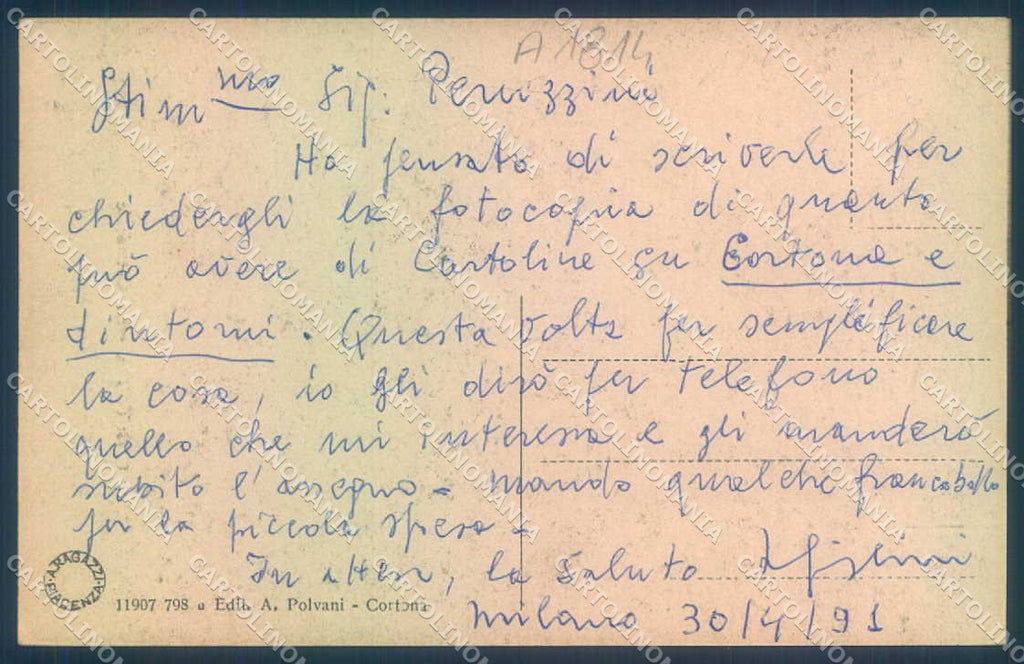 A1814
Stim mo Sig. Peruzzini
Ho pensato di scriverle per
chiedergli la fotocopia di quanto
può avere di Cartoline su Cortona e
dintorni. Questa volta per semplificare
la cosa, io gli dirò per telefono
quello che mi interessa e gli manderò
subito l'assegno - mando qualche francobollo
per la piccola spesa -
In attesa, la saluto
Milano 30/4/91
ARAGAZZI PIACENZA
11907 798 a Edit. A. Polvani - Cortona
CARTOLINOMANIA